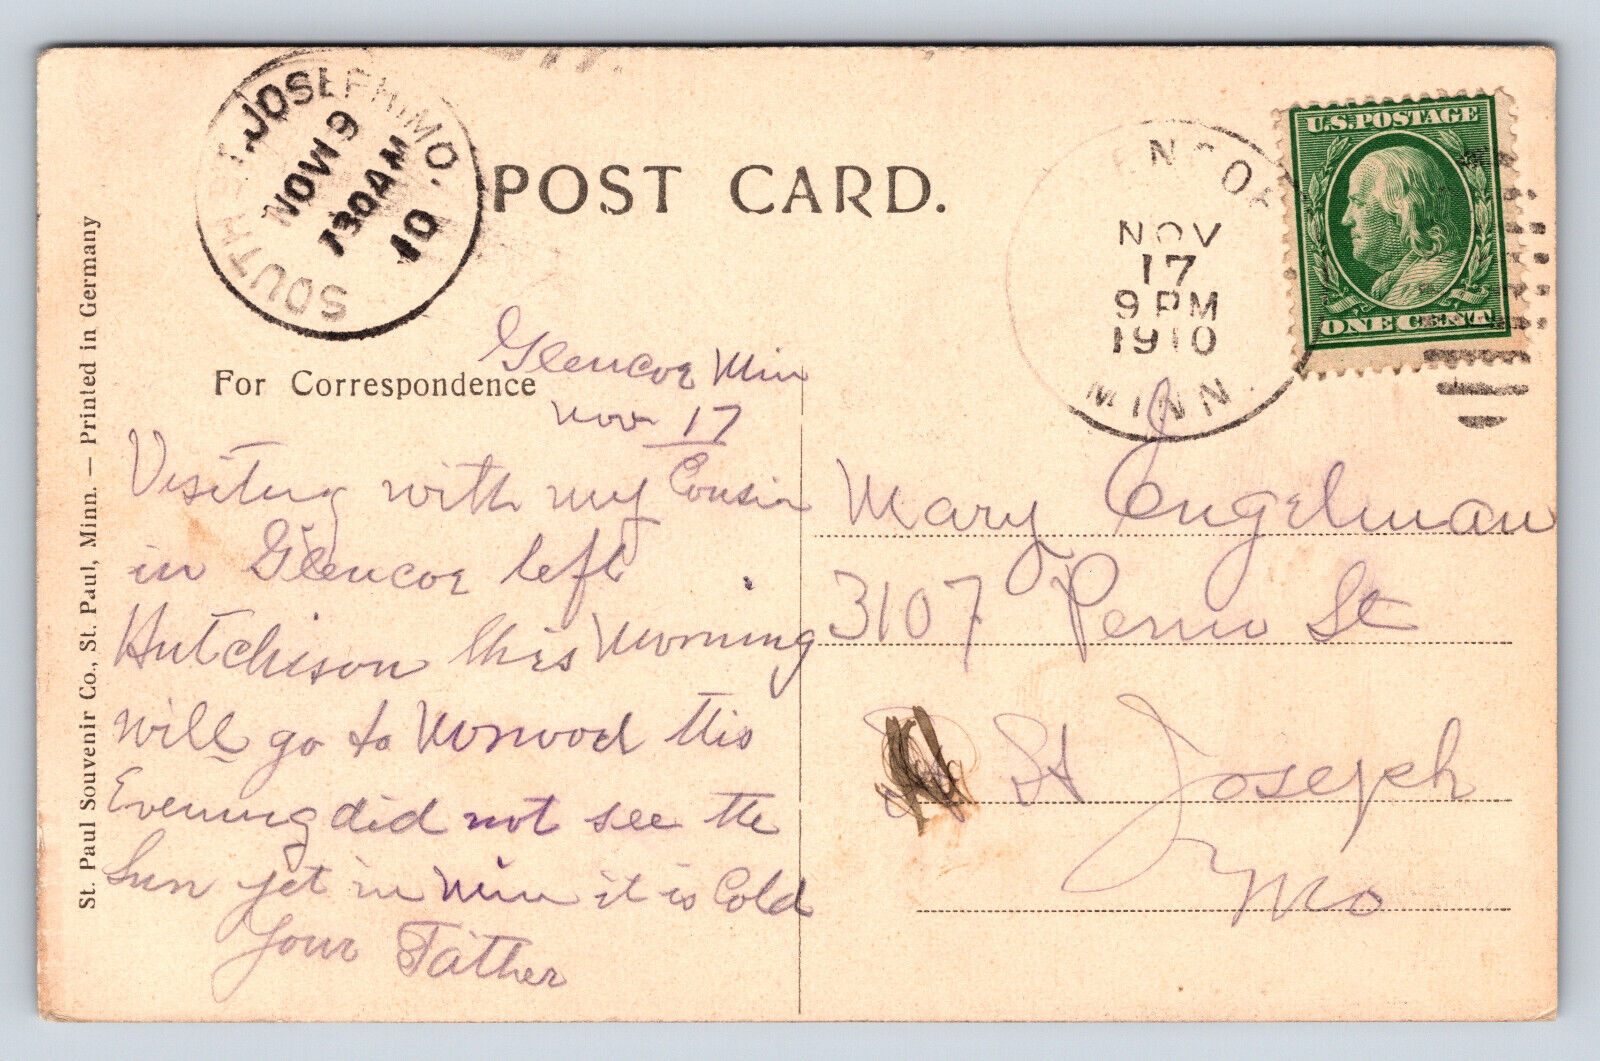 SOUTH ST. JOSEPH, MO.
NOV 19
730AM
10
POST CARD.
ENCOE
NOV
17
9 PM
1910
MINN.
U.S.POSTAGE
ONE CENT
St. Paul Souvenir Co., St. Paul, Minn. — Printed in Germany
For Correspondence
Glencoe Min
Nov 17
Visiting with my Cousin
in Glencoe left
Hutchison this Morning
will go to Norwood this
Evening did not see the
Sun yet in Min it is Cold
Your Father
Mary Engelman
3107 St
St Joseph
Mo